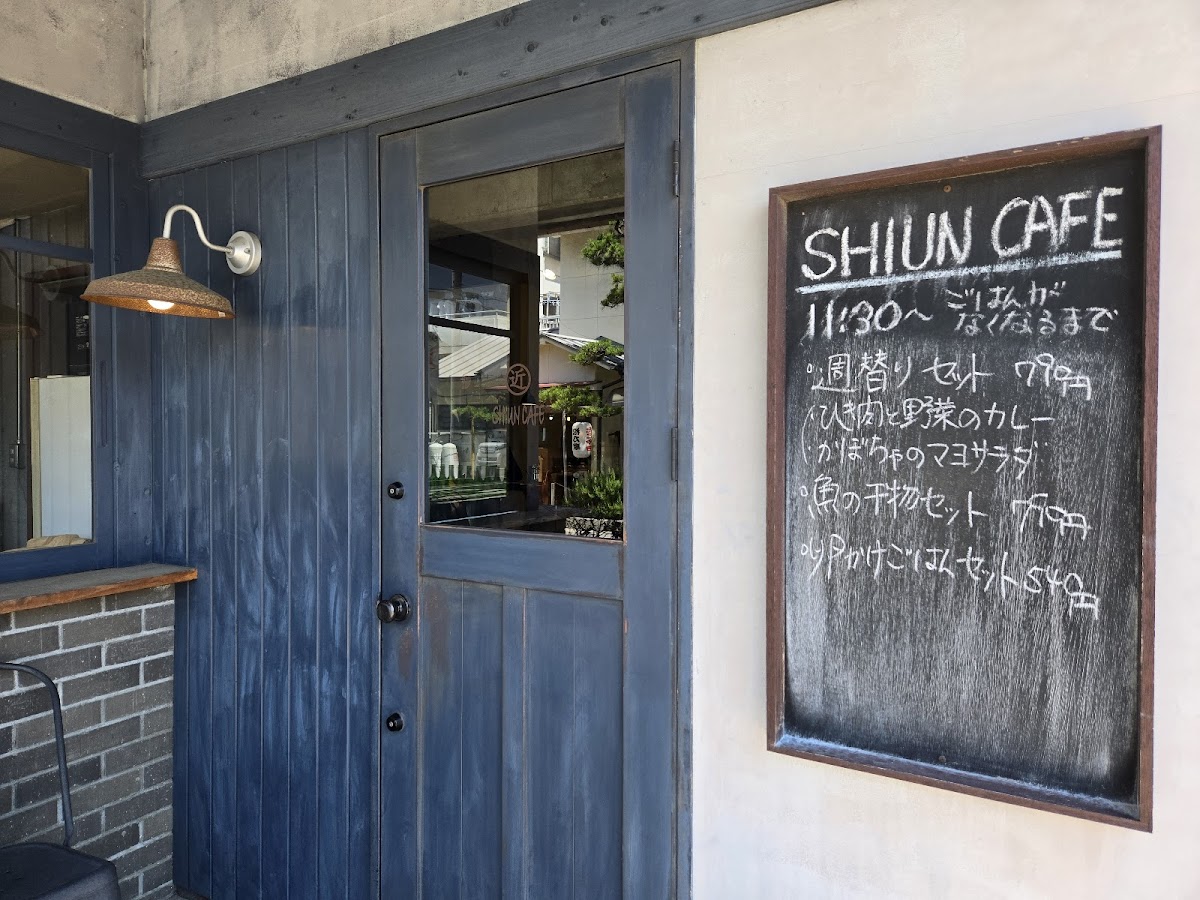 近
SHIUN CAFE
SHIUN CAFE
11:30〜 ごはんが
なくなるまで
週替り セット 790円
ひき肉と野菜のカレー
かぼちゃのマヨサラダ
魚の干物セット 710円
卵かけごはんセット 540円